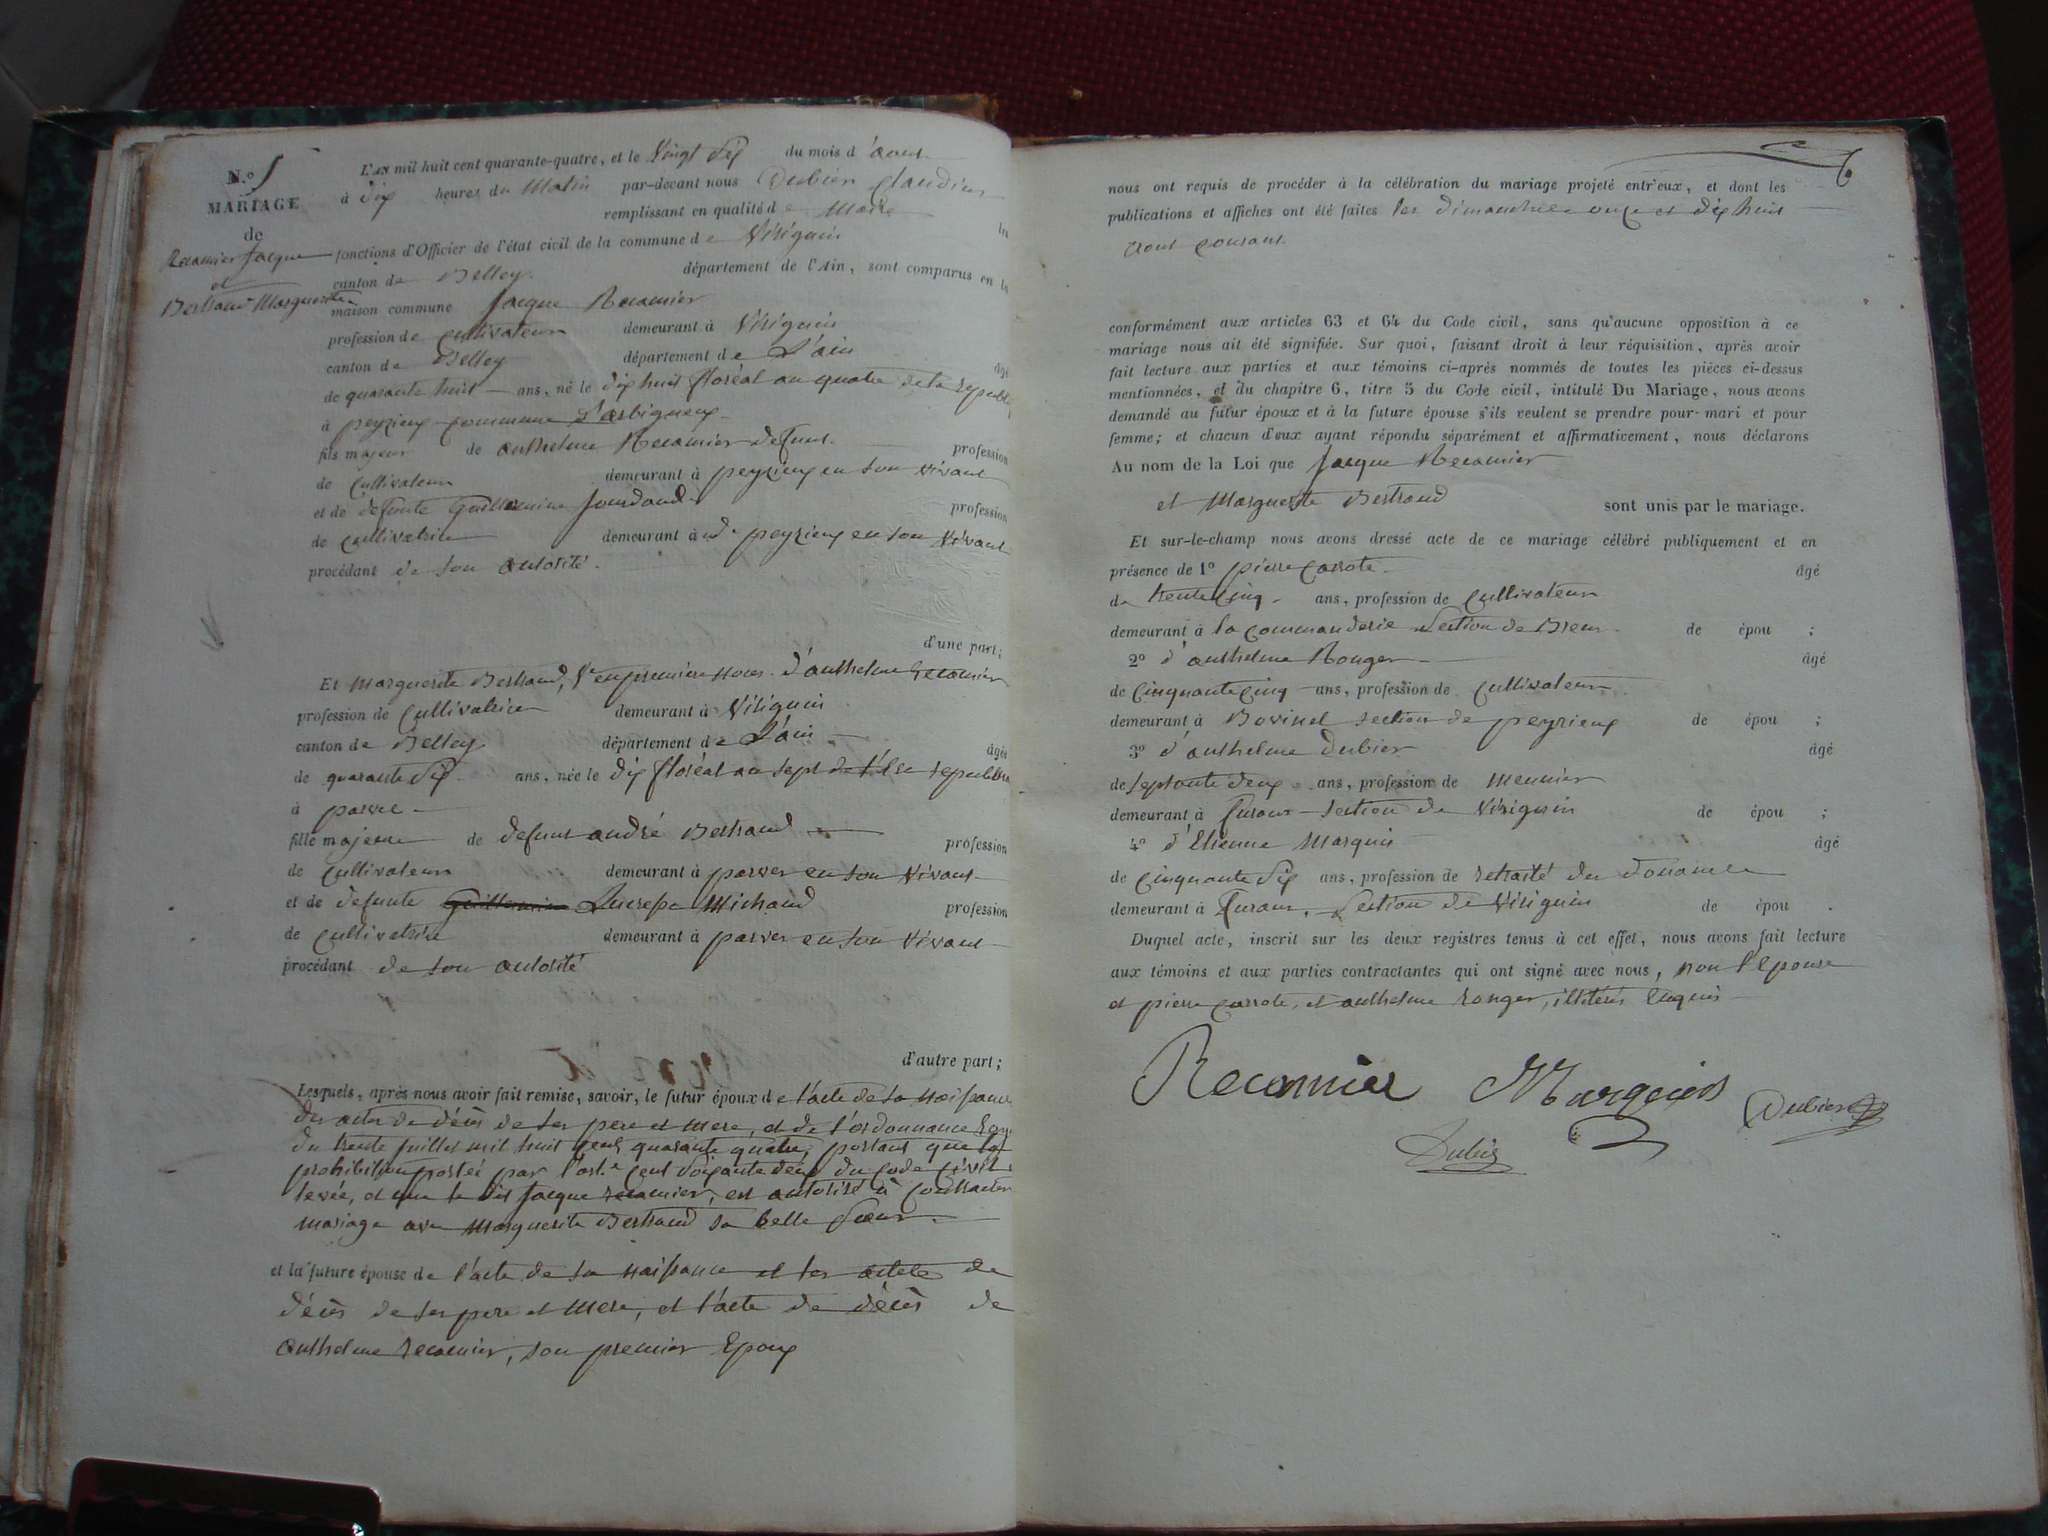 N.º 5
MARIAGE
de
Recamier Jacque
et
Bertrand Marguerite
L'AN mil huit cent quarante-quatre, et le vingt six du mois d'aout
à dix heures du matin par-devant nous Dubier Claudius
remplissant en qualité de maire les
fonctions d'Officier de l'état civil de la commune de Virignin
canton de Belley département de l'Ain, sont comparus en la
maison commune Jacque Recamier
profession de cultivateur demeurant à Virignin
canton de Belley département de L'ain âgé
de quarante huit ans, né le dix huit floréal an quatre de la republi
à peyrieux commune d'arbignieux
fils majeur de anthelme Recamier defunt profession
de cultivateur demeurant à peyrieux en son vivant
et de defunte Guillermine Jourdand profession
de cultivatrice demeurant à ud. peyrieux en son vivant
procédant de son autorité.
d'une part;
Et Marguerite Bertrand, Ve en premiere noces d'anthelme Recamier
profession de cultivatrice demeurant à Virignin
canton de Belley département de L'ain âgée
de quarante six ans, née le dix floréal an sept de la republi
à parves
fille majeure de defunt andré Bertrand profession
de cultivateur demeurant à parves en son vivant
et de defunte Guillermine Lucresse Michaud profession
de cultivatrice demeurant à parves en son vivant
procédant de son autorité
d'autre part;
Lesquels, après nous avoir fait remise, savoir, le futur époux de l'acte de sa naissance
des actes de décès de ses pere et mere, et de l'ordonnance Roy
du trente juillet mil huit cent quarante quatre, portant que la
prohibition portée par l'art.e cent soixante deux du code civil
levée, et que le dit Jacque recamier, est autorisé à contracter
mariage avec Marguerite Bertrand sa belle sœur.
et la future épouse de l'acte de sa naissance et les actes de
décès de ses pere et mere, et l'acte de décès de
anthelme recamier, son premier Epoux
6
nous ont requis de procéder à la célébration du mariage projeté entr'eux, et dont les
publications et affiches ont été faites les dimanches onze et dix huit
aout courant.
conformément aux articles 63 et 64 du Code civil, sans qu'aucune opposition à ce
mariage nous ait été signifiée. Sur quoi, faisant droit à leur réquisition, après avoir
fait lecture aux parties et aux témoins ci-après nommés de toutes les pièces ci-dessus
mentionnées, et du chapitre 6, titre 5 du Code civil, intitulé Du Mariage, nous avons
demandé au futur époux et à la future épouse s'ils veulent se prendre pour mari et pour
femme; et chacun d'eux ayant répondu séparément et affirmativement, nous déclarons
Au nom de la Loi que Jacque Recamier
et Marguerite Bertrand sont unis par le mariage.
Et sur-le-champ nous avons dressé acte de ce mariage célébré publiquement et en
présence de 1º pierre carrote âgé
de trente cinq ans, profession de cultivateur
demeurant à la commanderie section de Brens de épou ;
2º d'anthelme Ronger âgé
de cinquante cinq ans, profession de cultivateur
demeurant à Bovinel section de peyrieux de épou ;
3º d'anthelme dubier âgé
de septante deux ans, profession de meunier
demeurant à furans section de Virignin de épou ;
4º d'Etienne Marquis âgé
de cinquante six ans, profession de retraité des douanes
demeurant à furans, section de Virignin de épou .
Duquel acte, inscrit sur les deux registres tenus à cet effet, nous avons fait lecture
aux témoins et aux parties contractantes qui ont signé avec nous, non l'Epouse
et pierre carrote, et anthelme ronger, illitérés Enquis
Recamier Marquis Dubier
Dubier